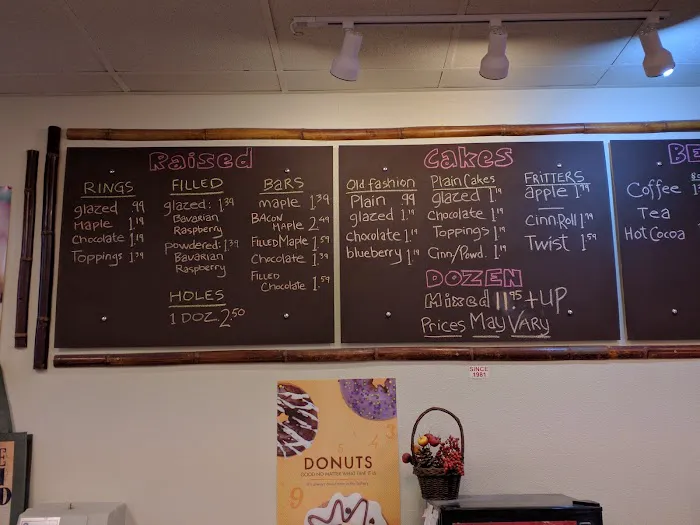 Raised
RINGS
glazed .99
Maple 1.19
Chocolate 1.19
Toppings 1.39
FILLED
glazed: 1.39
Bavarian
Raspberry
powdered: 1.39
Bavarian
Raspberry
HOLES
1 DOZ. 2.50
BARS
maple 1.39
BACON
MAPLE 2.49
FILLED Maple 1.59
Chocolate 1.39
FILLED
Chocolate 1.59
Cakes
Old fashion
Plain .99
glazed 1.19
chocolate 1.19
blueberry 1.19
Plain Cakes
glazed 1.19
Chocolate 1.19
Toppings 1.19
Cinn/Powd. 1.19
FRITTERS
apple 1.99
Cinn.Roll 1.99
Twist 1.59
DOZEN
Mixed 11.95 + UP
Prices May Vary
BE
Coffee
Tea
Hot Cocoa
SINCE
1981
DONUTS